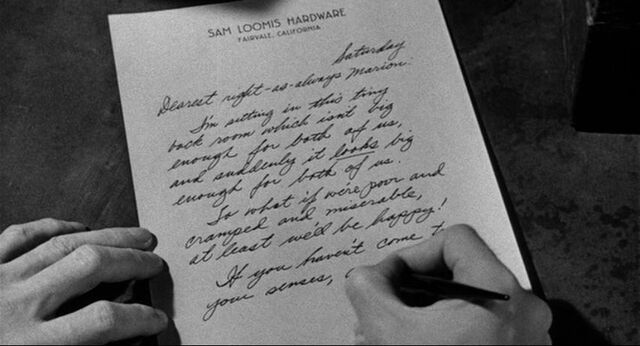 SAM LOOMIS HARDWARE
FAIRVALE, CALIFORNIA
Saturday
Dearest right-as-always Marion:
I'm sitting in this tiny
back room which isn't big
enough for both of us,
and suddenly it looks big
enough for both of us.
So what if we're poor and
cramped and miserable,
at least we'll be happy!
If you haven't come t
your senses,